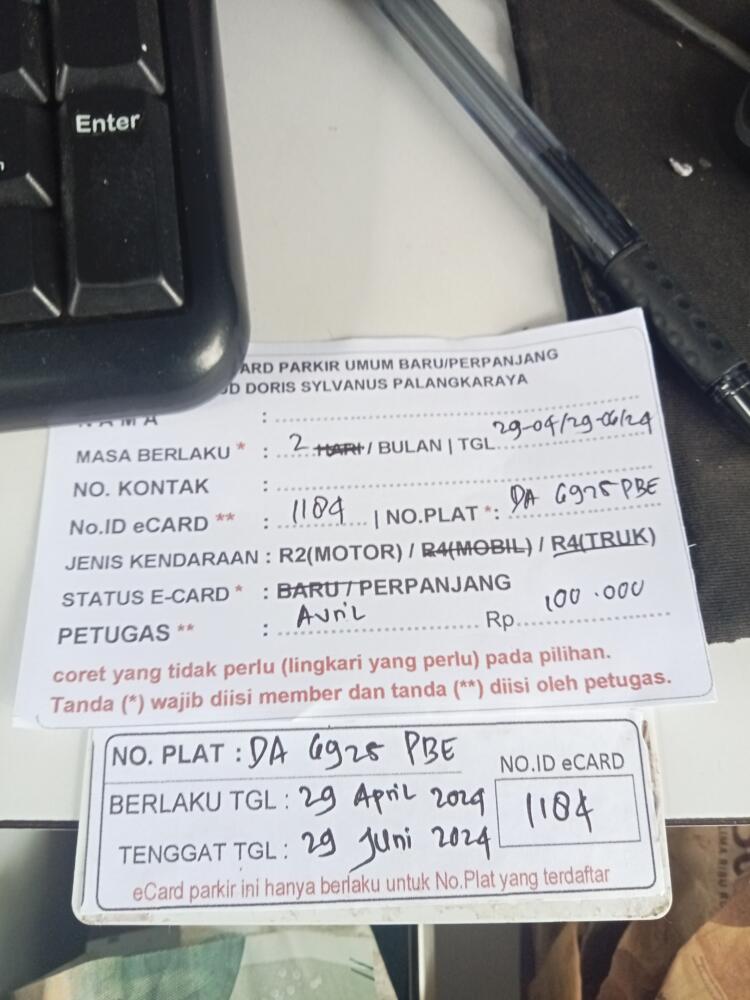 Enter
ARD PARKIR UMUM BARU/PERPANJANG
D DORIS SYLVANUS PALANGKARAYA
NAMA :
MASA BERLAKU * : 2 HARI / BULAN | TGL 29-04/29-06/24
NO. KONTAK :
No.ID eCARD ** : 1184 | NO.PLAT *: DA 6925 PBE
JENIS KENDARAAN : R2(MOTOR) / R4(MOBIL) / R4(TRUK)
STATUS E-CARD * : BARU / PERPANJANG
PETUGAS ** : Avril Rp. 100.000
coret yang tidak perlu (lingkari yang perlu) pada pilihan.
Tanda (*) wajib diisi member dan tanda (**) diisi oleh petugas.
NO. PLAT : DA 6925 PBE
NO.ID eCARD
BERLAKU TGL : 29 April 2024
1184
TENGGAT TGL : 29 Juni 2024
eCard parkir ini hanya berlaku untuk No.Plat yang terdaftar